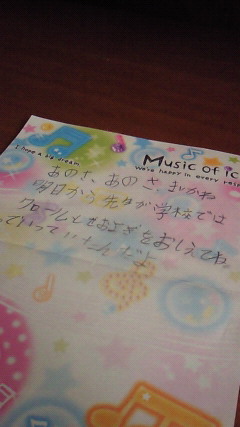 I hope a big dream
Music of ic
We're happy in every resp
あのさ、あのさ、まいかね
明日から先生が学校では
クロールとせおよぎをおしえてね
っていっていたんだよ